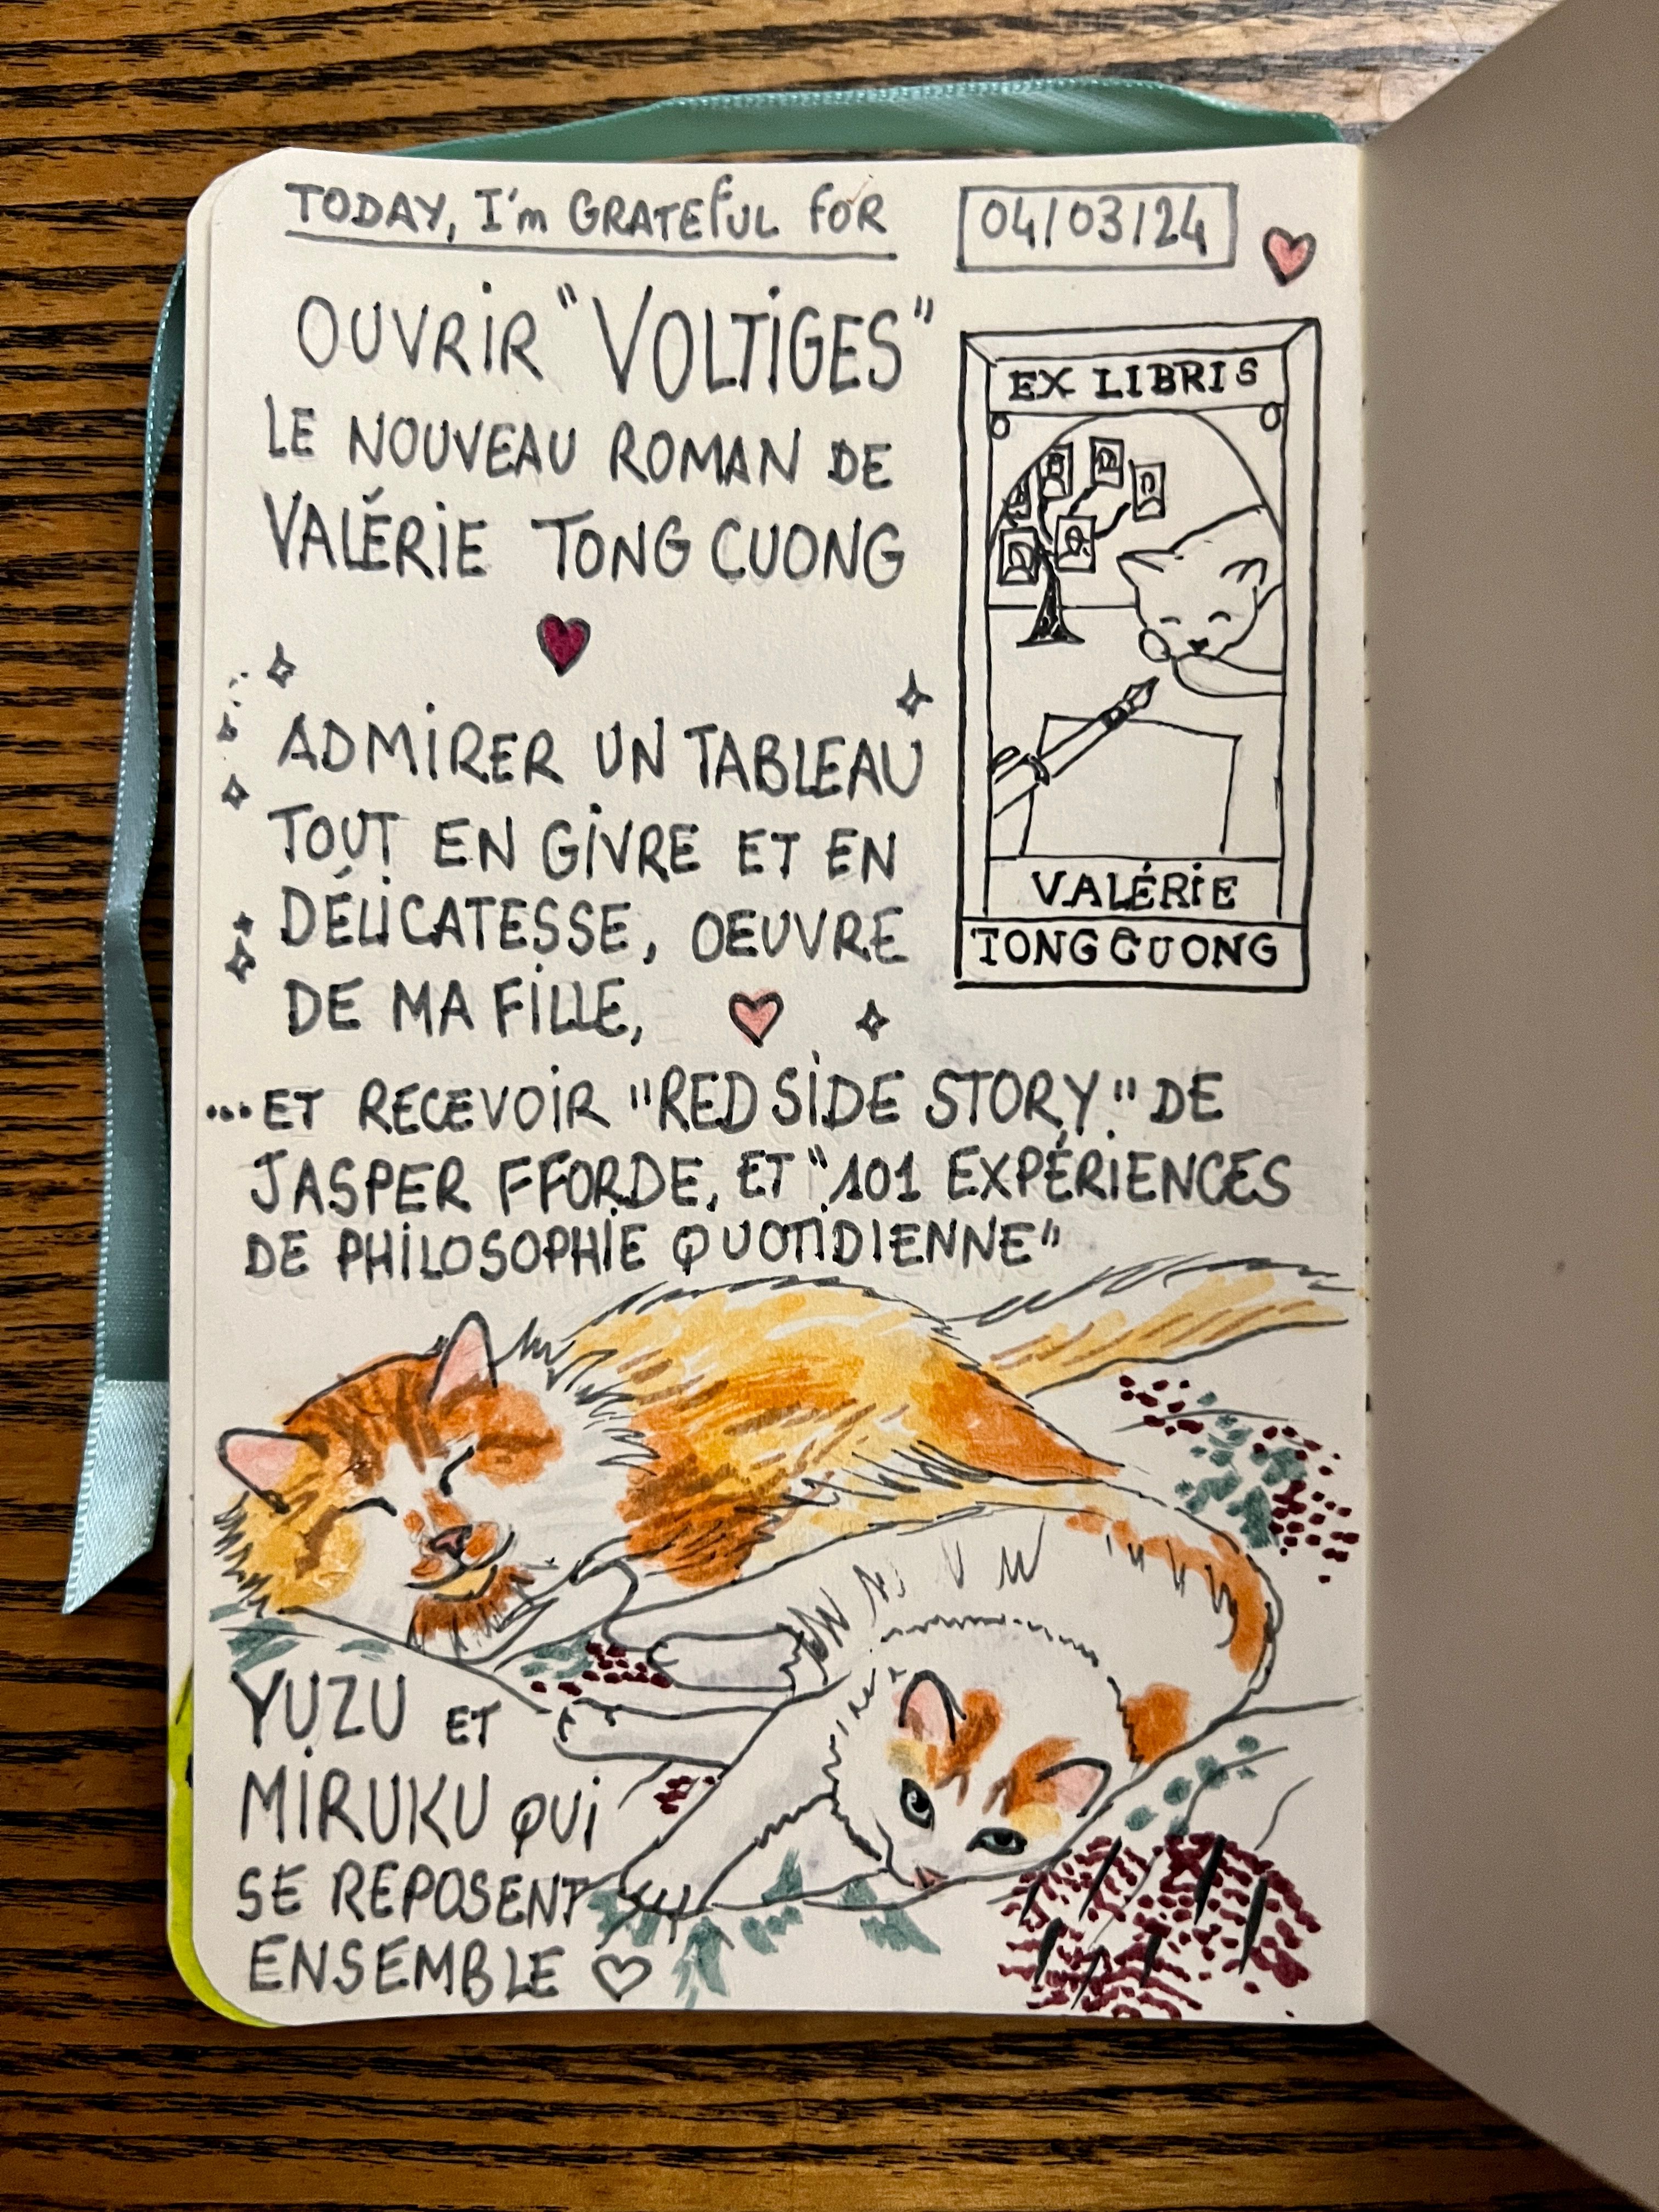 TODAY, I'm GRATEFUL FOR
04/03/24
OUVRIR "VOLTIGES"
LE NOUVEAU ROMAN DE
VALÉRIE TONG CUONG
EX LIBRIS
VALÉRIE
TONG CUONG
ADMIRER UN TABLEAU
TOUT EN GIVRE ET EN
DÉLICATESSE, OEUVRE
DE MA FILLE,
...ET RECEVOIR "RED SIDE STORY" DE
JASPER FFORDE, ET "101 EXPÉRIENCES
DE PHILOSOPHIE QUOTIDIENNE"
YUZU ET
MIRUKU QUI
SE REPOSENT
ENSEMBLE